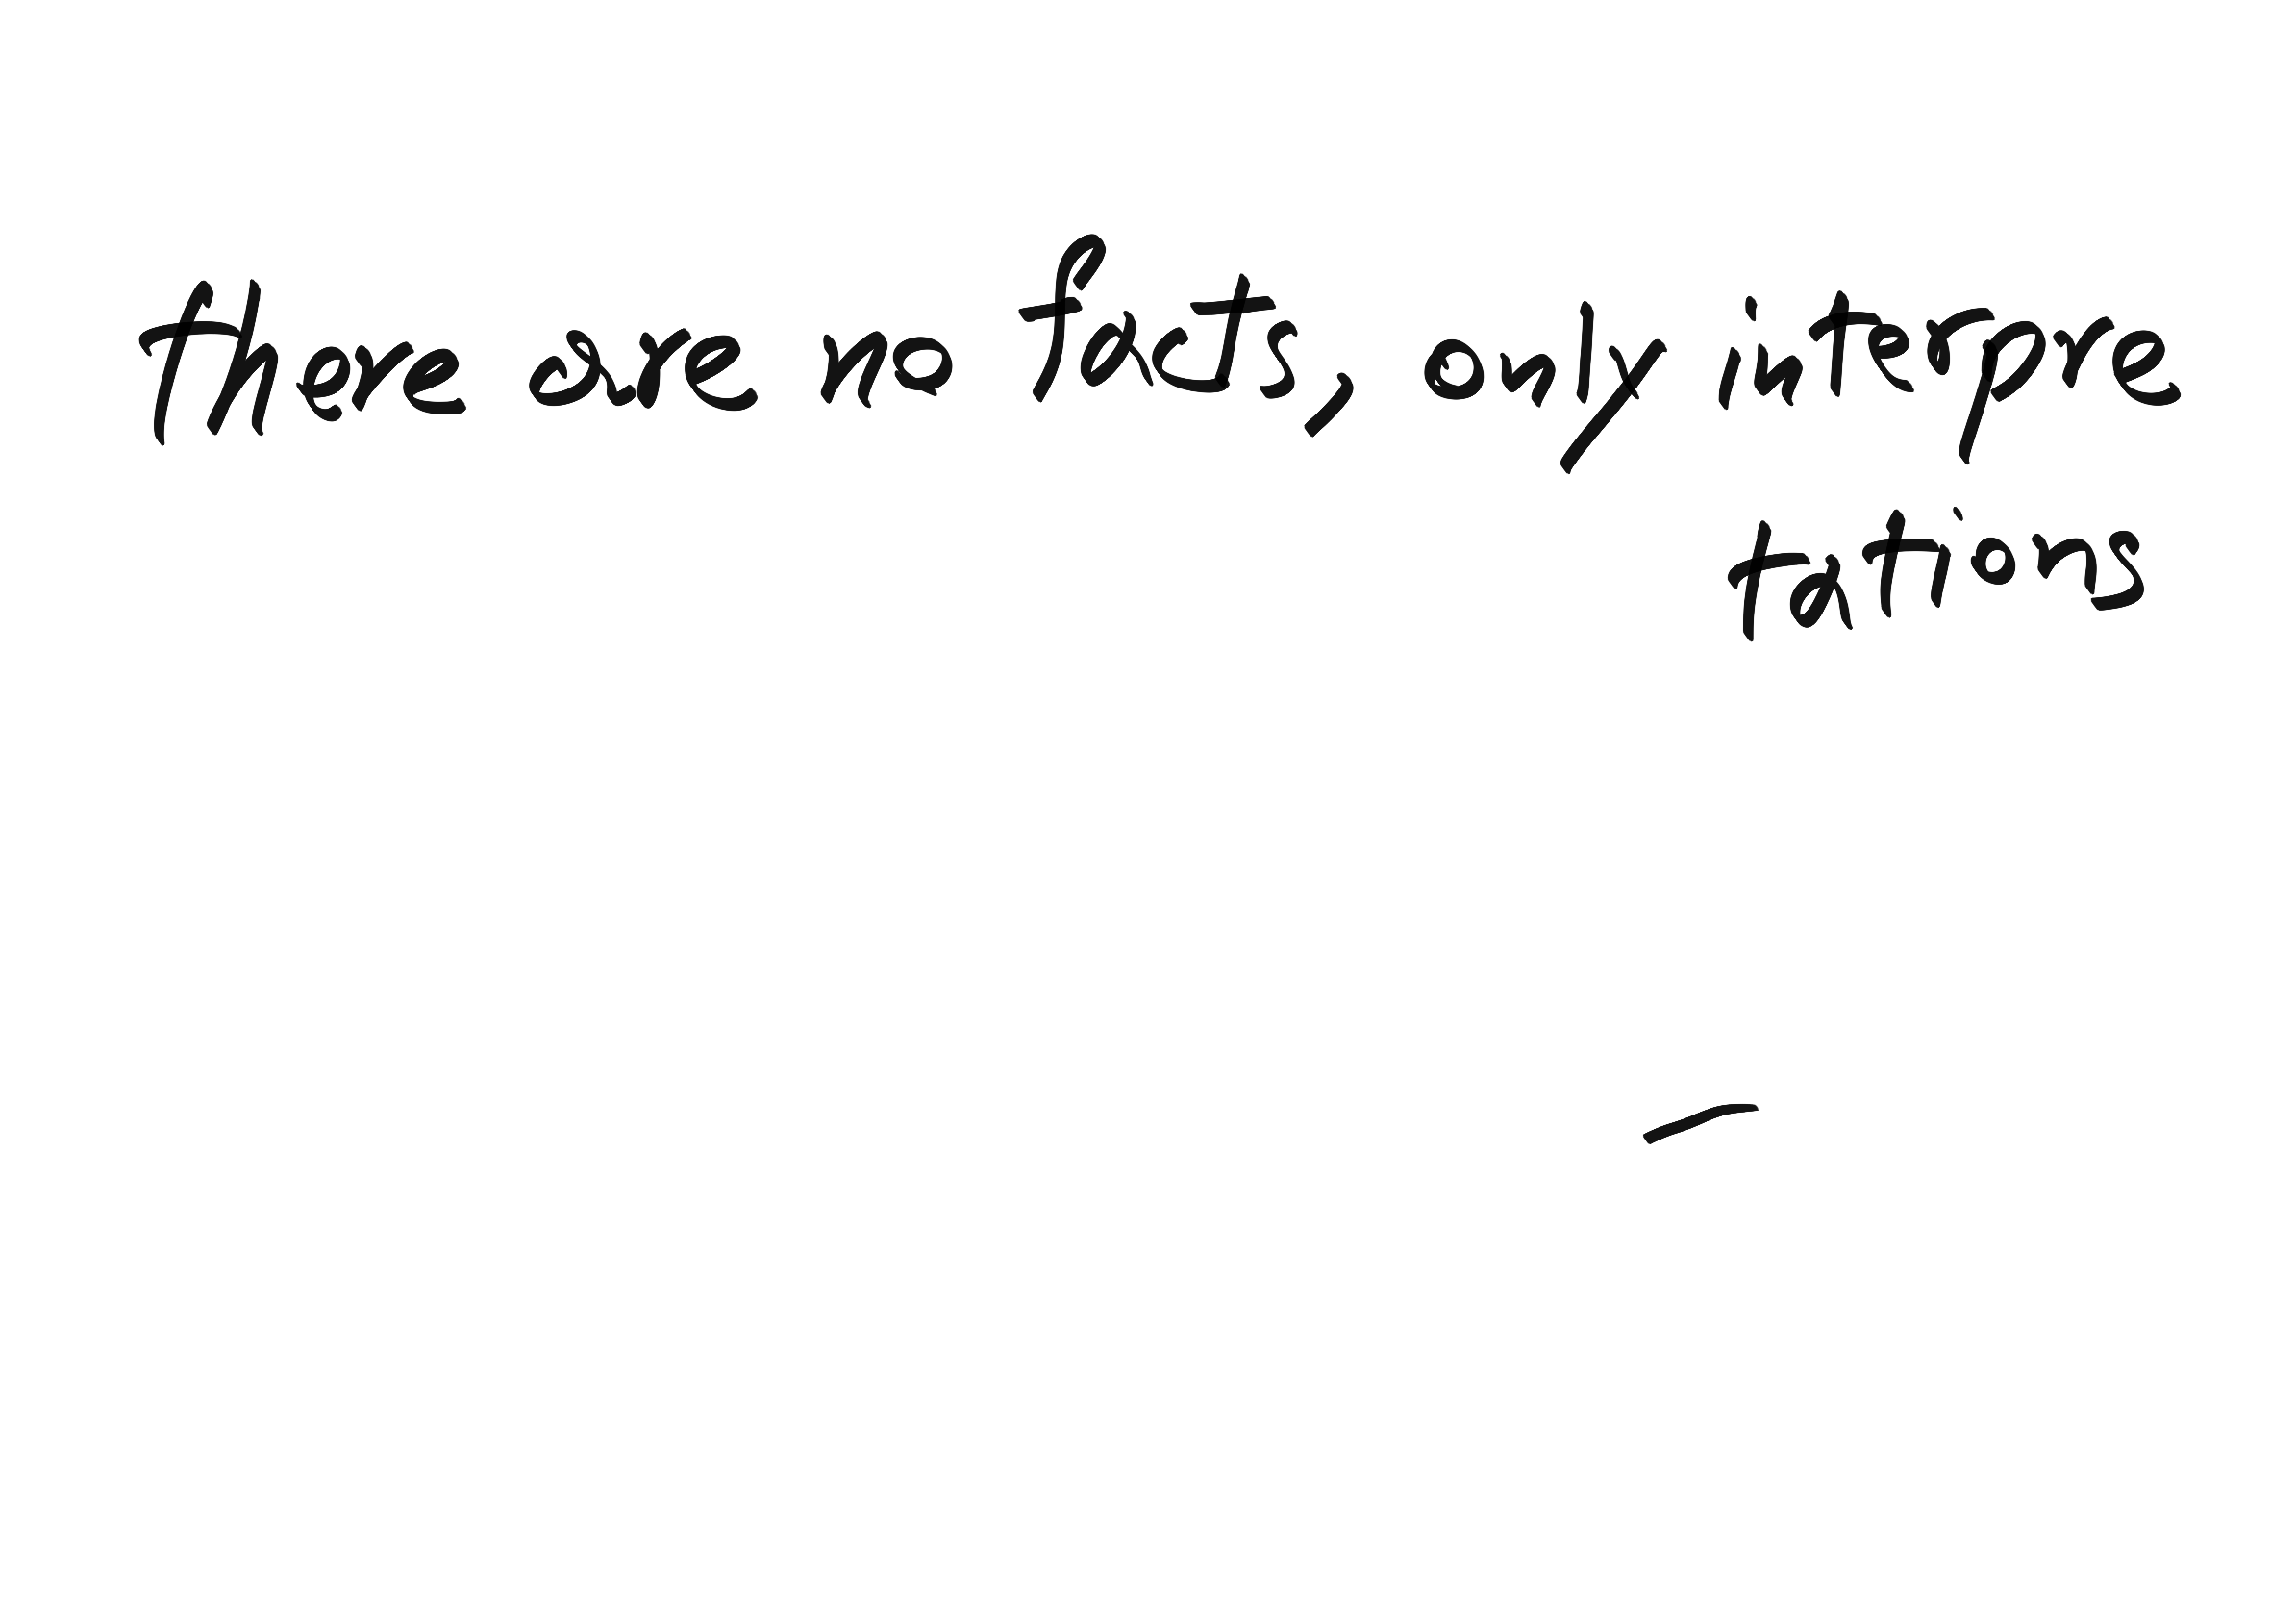 there are no facts, only interpre
tations